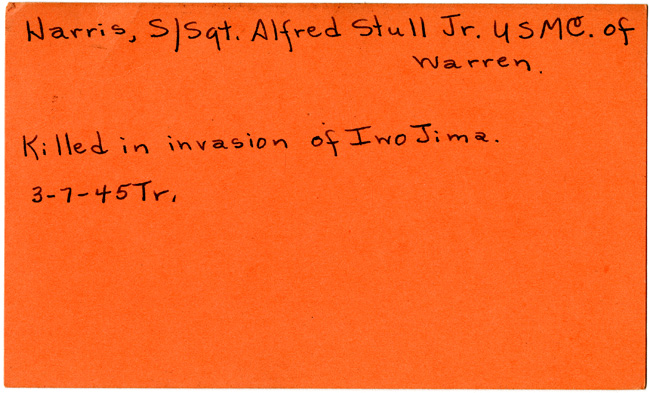 Harris, S/Sgt. Alfred Stull Jr. USMC. of
Warren.
Killed in invasion of Iwo Jima.
3-7-45 Tr.